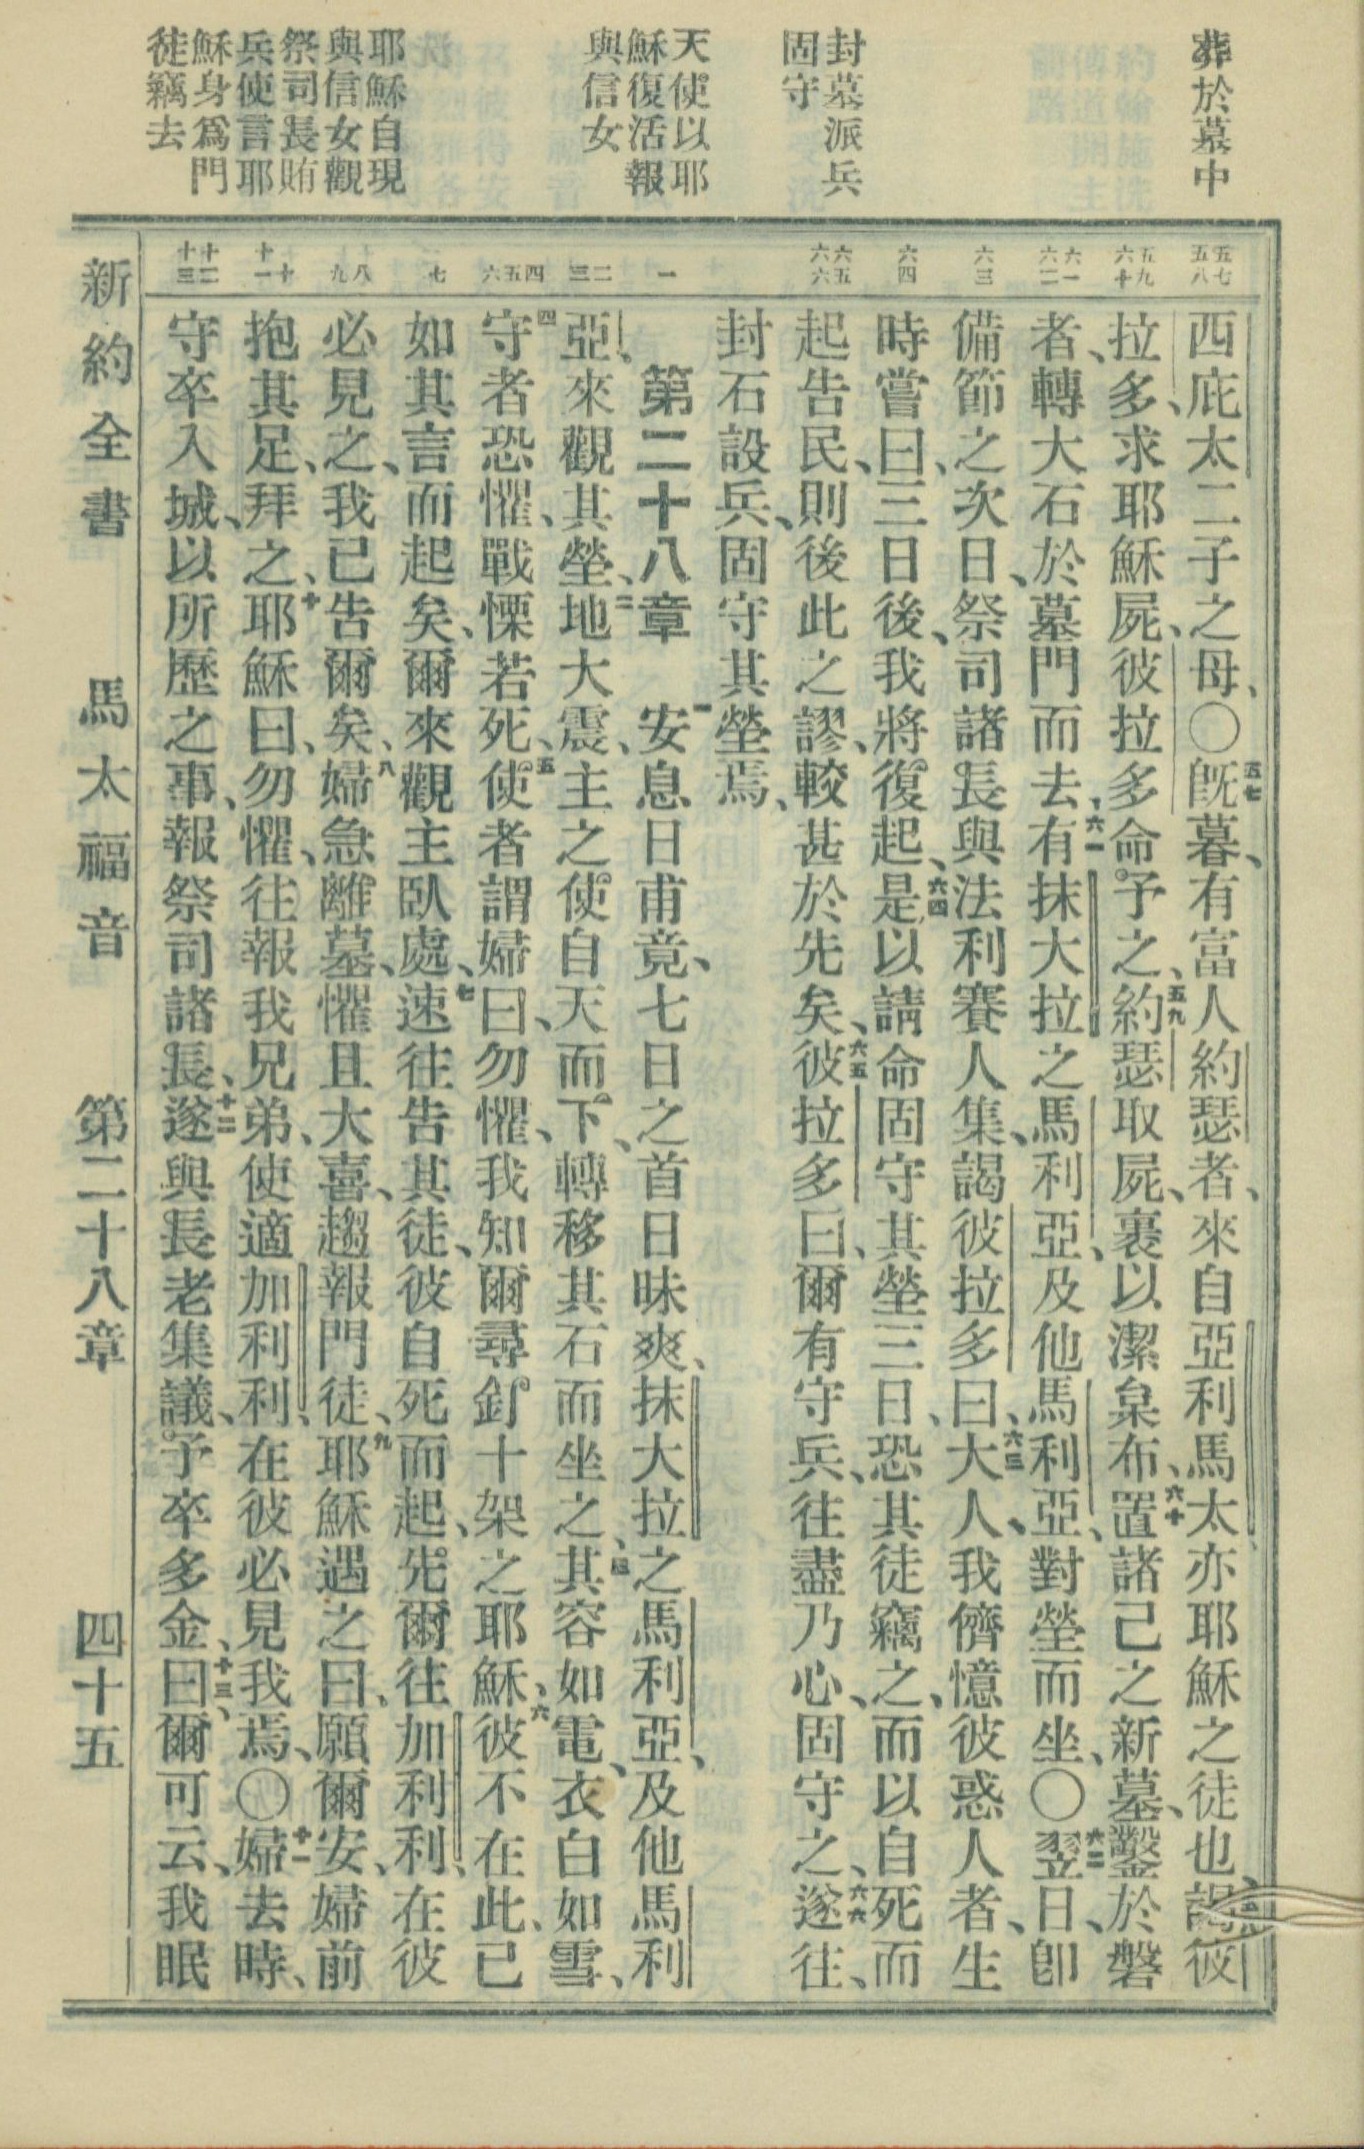 葬於墓中
封墓派兵
固守
天使以耶
穌復活報
與信女
耶穌自現
與信女觀
祭司長賄
兵使言耶
穌身爲門
徒竊去
五七 五八
五九 六十
六一 六二
六三
六四
六五 六六
一
二 三
四 五 六
七
八 九
十 十一
十二 十三
西庇太二子之母、〇五七旣暮、有富人約瑟者、來自亞利馬太、亦耶穌之徒也、五八謁彼
拉多、求耶穌屍、彼拉多命予之、五九約瑟取屍、裹以潔枲布、六十置諸己之新墓、鑿於磐
者、轉大石於墓門而去、六一有抹大拉之馬利亞、及他馬利亞、對塋而坐、〇六二翌日、卽
備節之次日、祭司諸長與法利賽人集、謁彼拉多曰、六三大人、我儕憶彼惑人者、生
時嘗曰、三日後、我將復起、六四是以請命固守其塋三日、恐其徒竊之、而以自死而
起告民、則後此之謬、較甚於先矣、六五彼拉多曰、爾有守兵、往盡乃心、固守之、六六遂往、
封石設兵、固守其塋焉、
第二十八章 一安息日甫竟、七日之首日昧爽、抹大拉之馬利亞、及他馬利
亞、來觀其塋、二地大震、主之使自天而下、轉移其石而坐之、三其容如電、衣白如雪、
四守者恐懼、戰慄若死、五使者謂婦曰、勿懼、我知爾尋釘十架之耶穌、六彼不在此、已
如其言而起矣、爾來觀主臥處、七速往告其徒、彼自死而起、先爾往加利利、在彼
必見之、我已告爾矣、八婦急離墓、懼且大喜、趨報門徒、九耶穌遇之曰、願爾安、婦前
抱其足、拜之、十耶穌曰、勿懼、往報我兄弟、使適加利利、在彼必見我焉、〇十一婦去時、
守卒入城、以所歷之事、報祭司諸長、十二遂與長老集議、予卒多金、十三曰、爾可云、我眠
新約全書 馬太福音 第二十八章 四十五